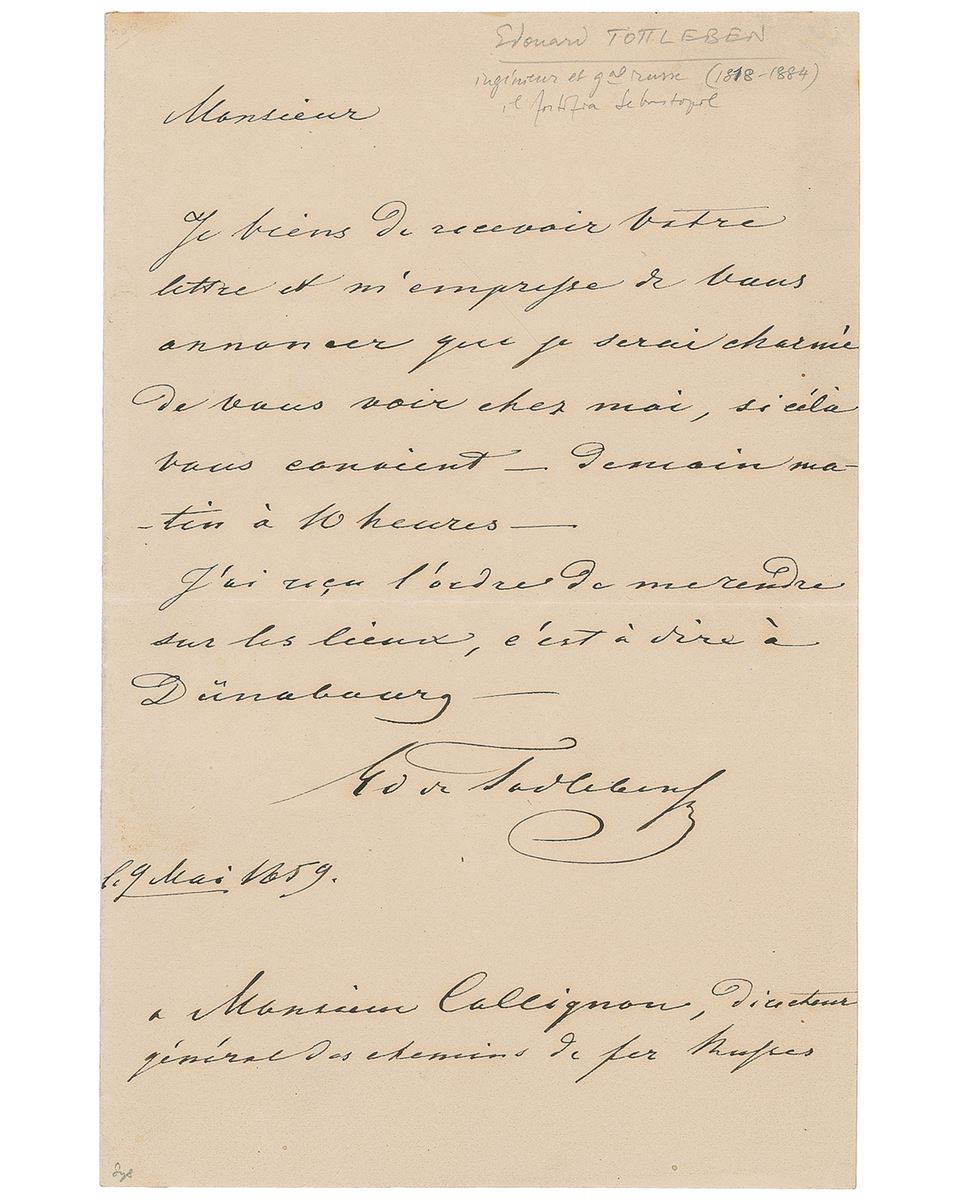 Edouard TOTLEBEN
ingénieur et gal russe (1818-1884)
il fortifia Sebastopol
Monsieur
Je viens de recevoir Votre
lettre et m'empresse de Vous
annoncer que je serai charmé
de vous voir chez moi, si célà
vous convient — demain ma-
-tin à 10 heures —
J'ai reçu l'ordre de me rendre
sur les lieux, c'est à dire à
Dünabourg —
Ed de Todleben
le 9 Mai 1859.
a Monsieur Collignon, directeur
général des chemins de fer Russes